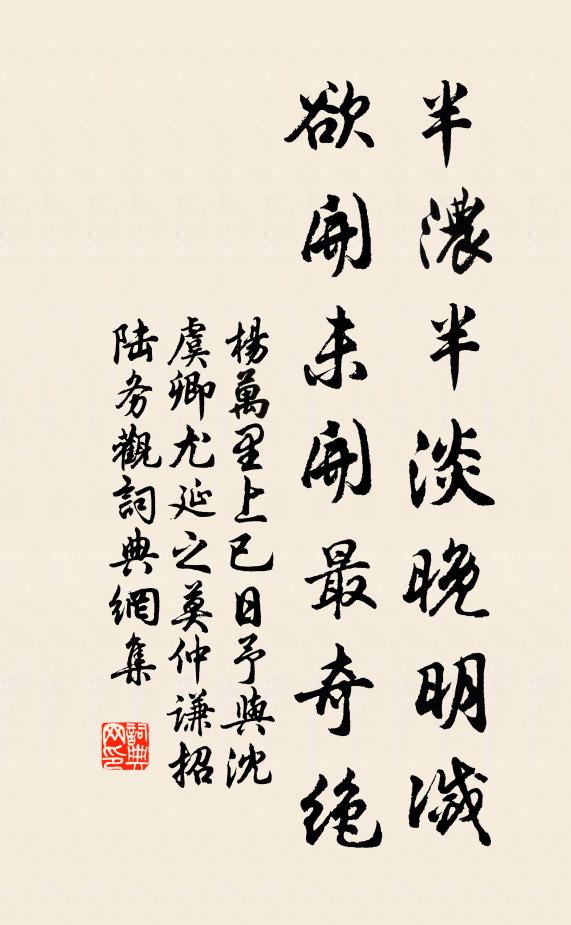 半濃半淡晚明滅
欲開未開最奇絕
楊萬里上巳日予與沈
虞卿尤延之莫仲謙招
陸務觀詞典網集
詞典網印